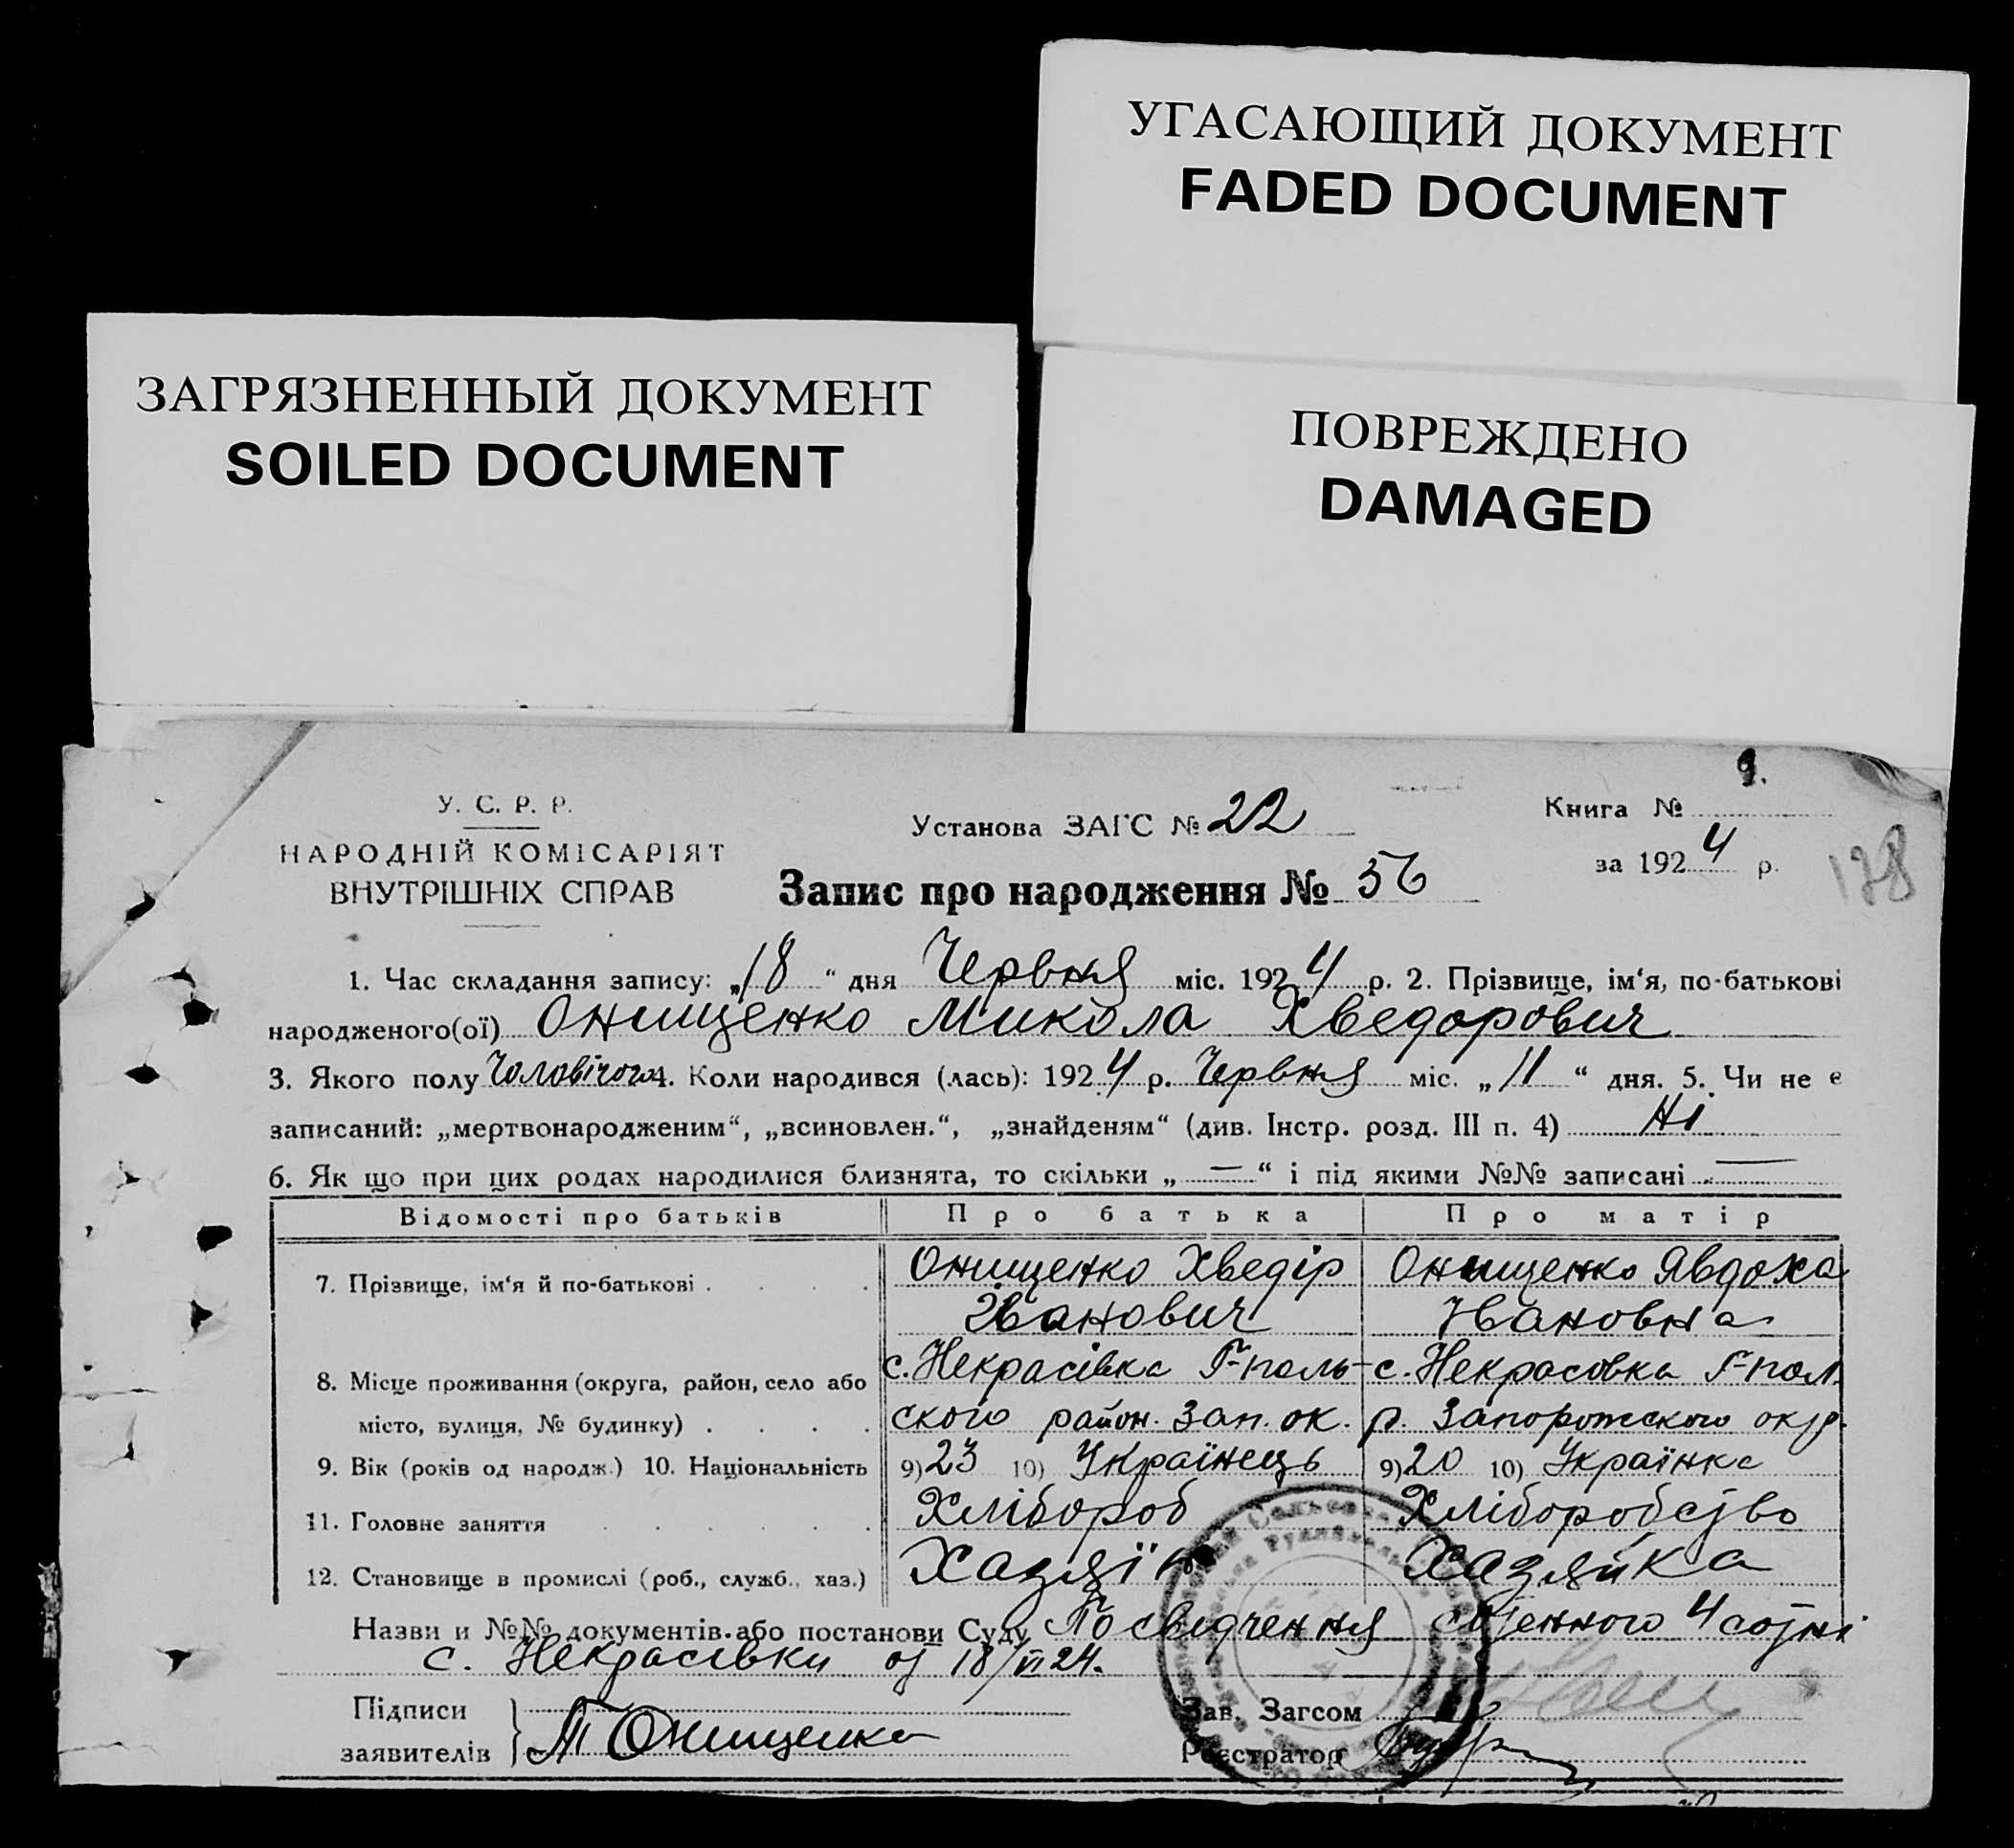 УГАСАЮЩИЙ ДОКУМЕНТ
FADED DOCUMENT
ЗАГРЯЗНЕННЫЙ ДОКУМЕНТ
SOILED DOCUMENT
ПОВРЕЖДЕНО
DAMAGED
У. С. Р. Р.
НАРОДНІЙ КОМІСАРІЯТ
ВНУТРІШНІХ СПРАВ
Установа ЗАГС № 22
Запис про народження № 56
Книга № 9.
за 1924 р.
128
1. Час складання запису: „18“ дня Червня міс. 1924 р. 2. Прізвище, ім‘я, по-батькові
народженого(ої) Онищенко Микола Хведорович
3. Якого полу Чоловічого 4. Коли народився (лась): 1924 р. Червня міс. „11“ дня. 5. Чи не є
записаний: „мертвонародженим“, „всиновлен.“, „знайденям“ (див. Інстр. розд. III п. 4) Ні
6. Як що при цих родах народилися близнята, то скільки „—“ і під якими №№ записані —
Відомості про батьків Про батька Про матір
7. Прізвище, ім‘я й по-батькові . . . . Онищенко Хведір Онищенко Явдоха
Иванович Ивановна
с. Некрасівка Г-поль- с. Некрасовка Г-пол.
8. Місце проживання (округа, район, село або
місто, вулиця, № будинку) . . . . ского район. Зап. ок. р. Запоромского окр.
9. Вік (років од народж.) 10. Національність 9) 23 10) Українець 9) 20 10) Українка
11. Головне заняття . . . . . . Хлібороб Хліборобство
12. Становище в промислі (роб., служб., хаз.) Хазяїн Хазяйка
Назви и №№ документів або постанови Суду Посвідчення сотенного 4 сотні
с. Некрасівки от 18/VI 24.
Підписи
заявителів Онищенко
Зав. Загсом
Реєстратор